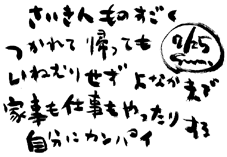 さいきんものすごく
つかれて帰っても
いねむりせず よなかまで
家事も仕事もやったりする
自分にカンパイ